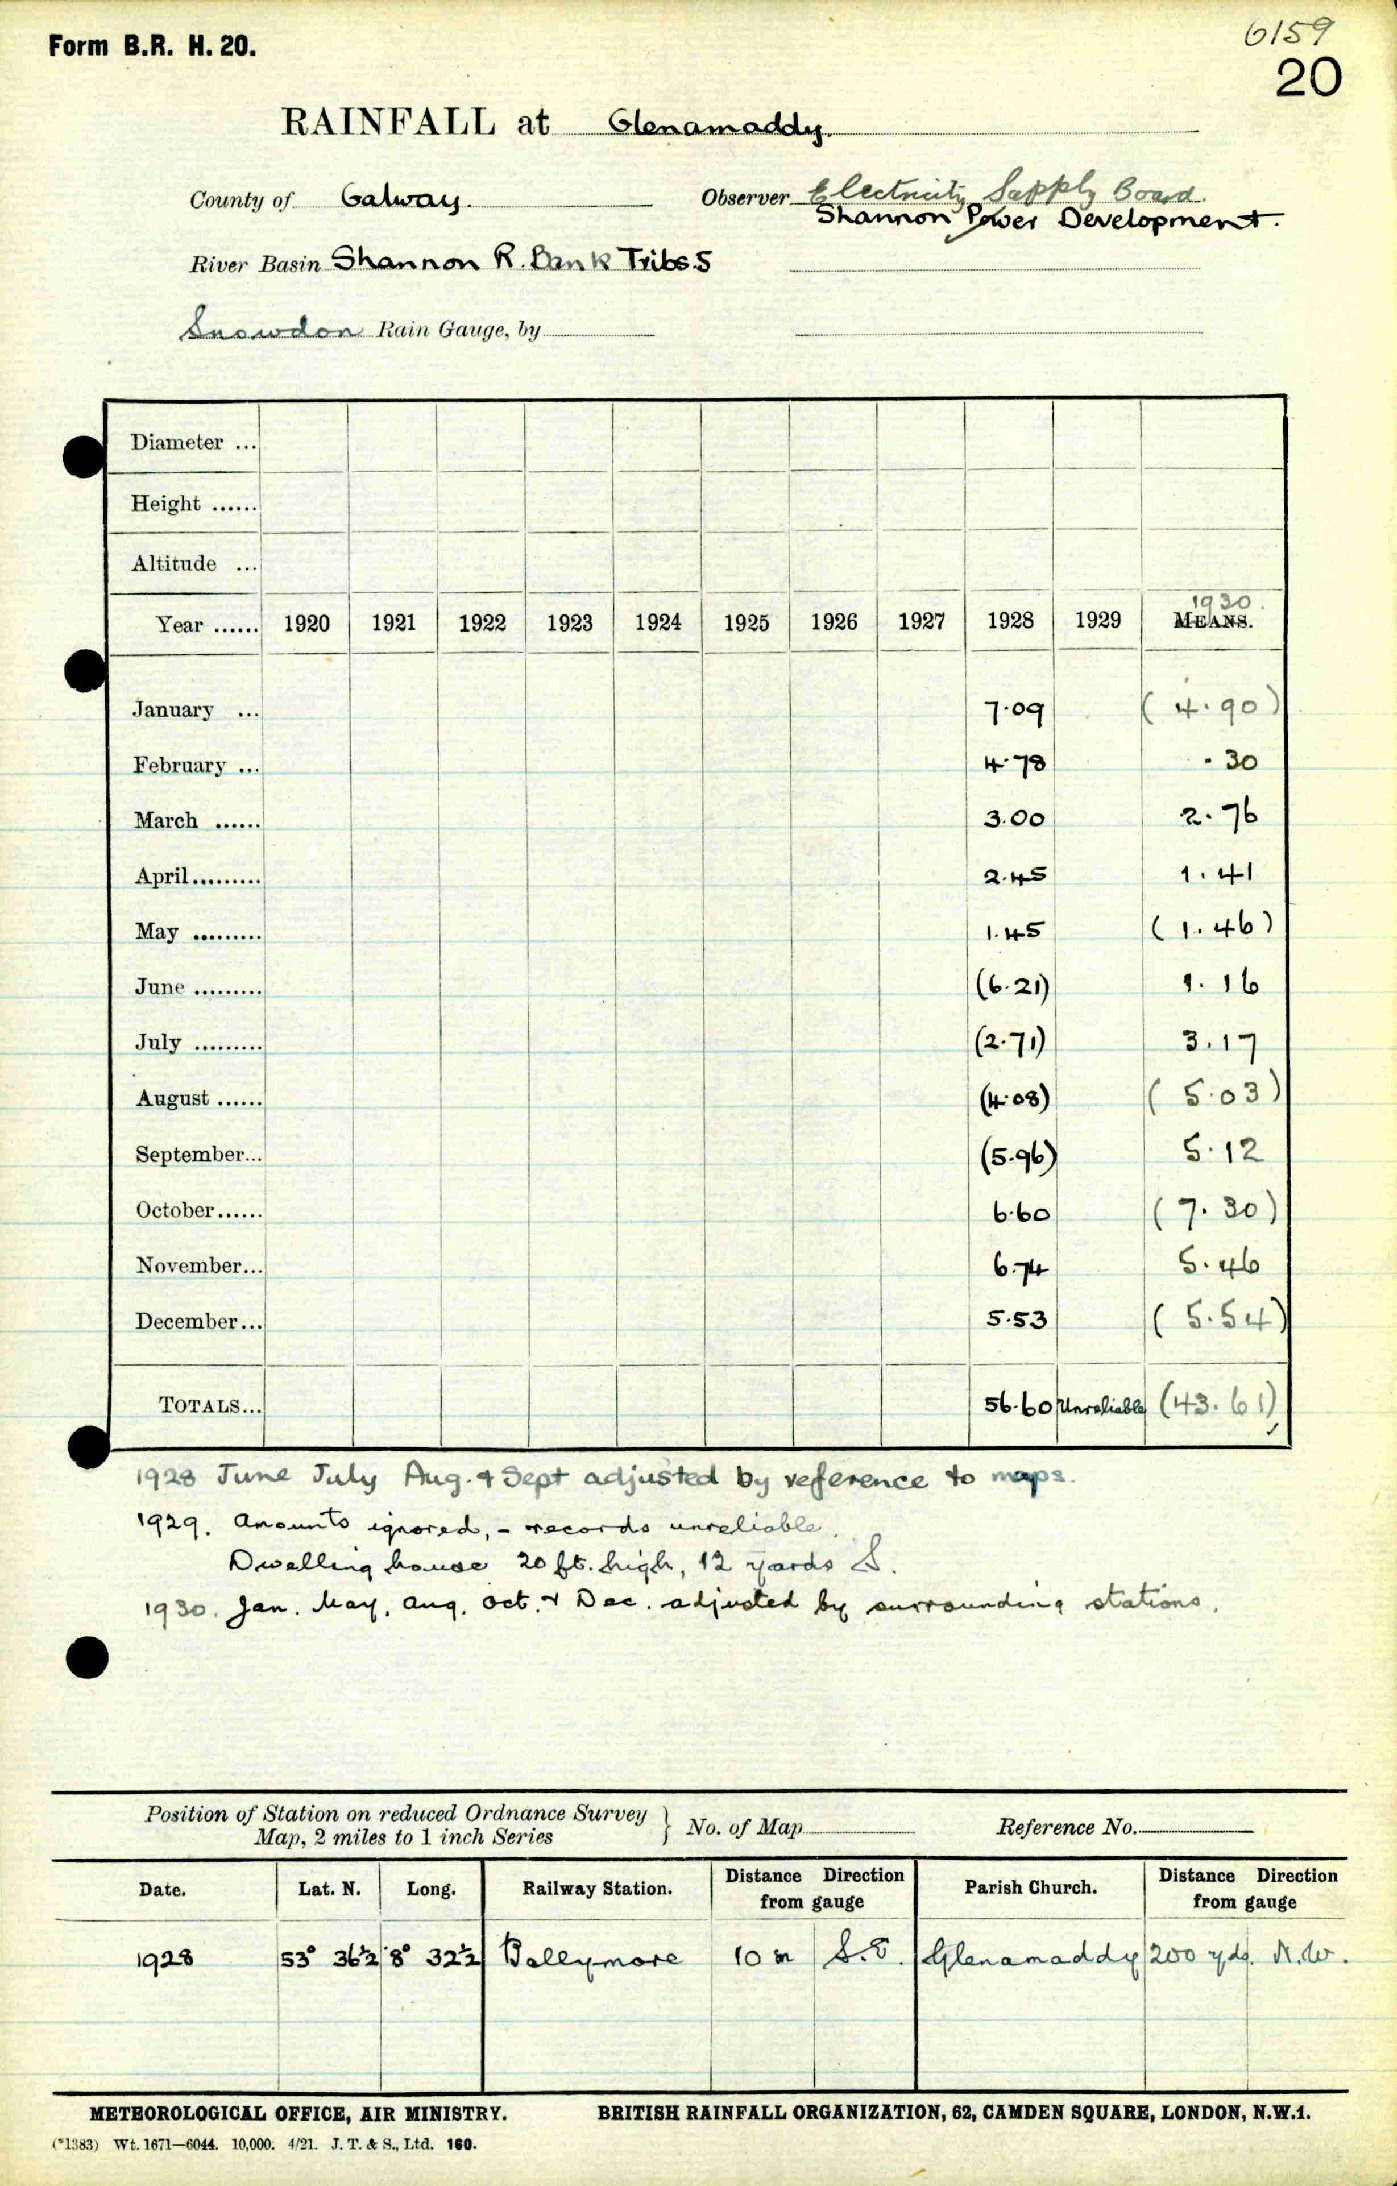 Form B.R. H. 20.
6159
20
RAINFALL at Glenamaddy.
County of Galway. Observer Electricity Supply Board.
Shannon Power Development.
River Basin Shannon R. Bank Tribs. 5
Snowdon Rain Gauge, by
Diameter ...
Height ......
Altitude ...
1930.
Year ...... 1920 1921 1922 1923 1924 1925 1926 1927 1928 1929 MEANS.
January ... 7.09 (4.90)
February ... 4.78 .30
March ...... 3.00 2.76
April......... 2.45 1.41
May ......... 1.45 (1.46)
June ......... (6.21) 1.16
July ......... (2.71) 3.17
August ...... (4.08) (5.03)
September... (5.96) 5.12
October...... 6.60 (7.30)
November... 6.74 5.46
December... 5.53 (5.54)
TOTALS... 56.60 Unreliable (43.61)
1928 June July Aug. & Sept adjusted by reference to maps.
1929. Amounts ignored, - records unreliable.
Dwelling house 20 ft. high, 12 yards S.
1930. Jan. May. Aug. Oct. & Dec. adjusted by surrounding stations.
Position of Station on reduced Ordnance Survey
Map, 2 miles to 1 inch Series } No. of Map Reference No.
Date. Lat. N. Long. Railway Station. Distance Direction from gauge Parish Church. Distance Direction from gauge
1928 53° 36½ 8° 32½ Ballymore 10 m S.E. Glenamaddy 200 yds. N.W.
METEOROLOGICAL OFFICE, AIR MINISTRY. BRITISH RAINFALL ORGANIZATION, 62, CAMDEN SQUARE, LONDON, N.W.1.
(*1383) Wt. 1671—6044. 10,000. 4/21. J. T. & S., Ltd. 160.